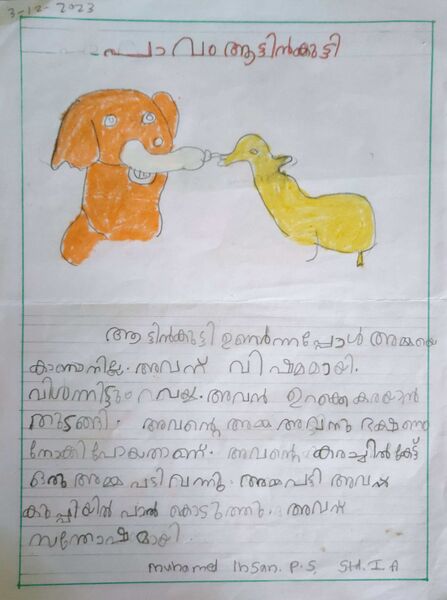 3-12-2023
പാവം ആട്ടിൻകുട്ടി
ആട്ടിൻകുട്ടി ഉണർന്നപ്പോൾ അമ്മയെ
കാണാനില്ല. അവന് വിഷമമായി.
വിശന്നിട്ടും വയ്യ. അവൻ ഉറക്കെ കരയാൻ
തുടങ്ങി. അവന്റെ അമ്മ ഭക്ഷണം
നോക്കി പോയതാണ്. അവന്റെ കരച്ചിൽ കേട്ട്
ഒരു അമ്മ പട്ടി വന്നു. അമ്മപട്ടി അവന്
കുപ്പിയിൽ പാൽ കൊടുത്തു. അവന്
സന്തോഷമായി.
Muhamed Ihsan. P. S. Std. I. A